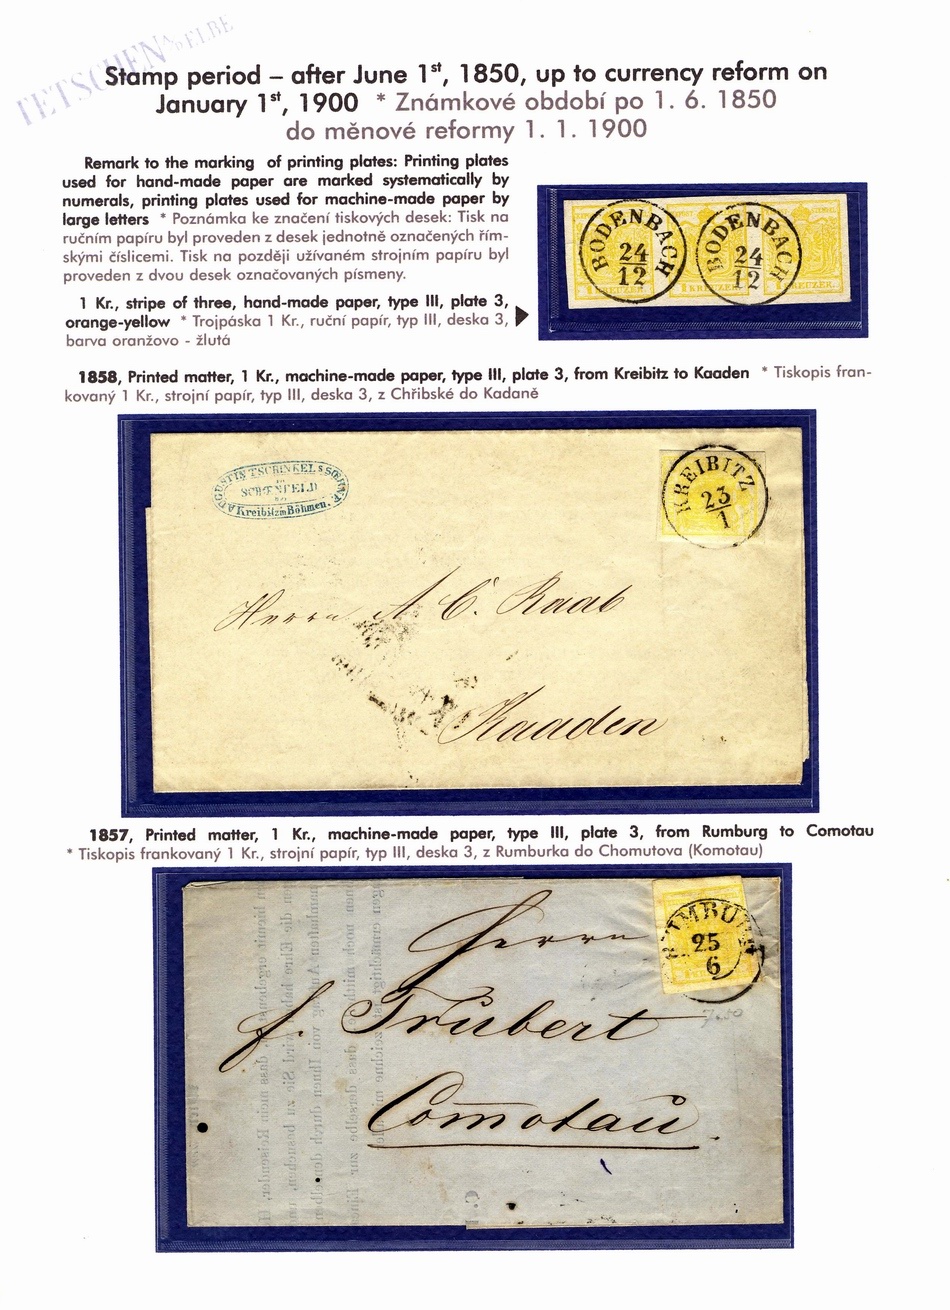 TETSCHEN A/D ELBE
Stamp period – after June 1st, 1850, up to currency reform on
January 1st, 1900 * Známkové období po 1. 6. 1850
do měnové reformy 1. 1. 1900
Remark to the marking of printing plates: Printing plates
used for hand-made paper are marked systematically by
numerals, printing plates used for machine-made paper by
large letters * Poznámka ke značení tiskových desek: Tisk na
ručním papíru byl proveden z desek jednotně označených řím-
skými číslicemi. Tisk na později užívaném strojním papíru byl
proveden z dvou desek označovaných písmeny.
1 Kr., stripe of three, hand-made paper, type III, plate 3,
orange-yellow * Trojpáska 1 Kr., ruční papír, typ III, deska 3,
barva oranžovo - žlutá
BODENBACH
24
12
BODENBACH
24
12
1 KREUZER
1858, Printed matter, 1 Kr., machine-made paper, type III, plate 3, from Kreibitz to Kaaden * Tiskopis fran-
kovaný 1 Kr., strojní papír, typ III, deska 3, z Chřibské do Kadaně
AUGUSTIN TSCHINKEL S SOEHNE
in
SCHŒNFELD
bei
Kreibitz in Böhmen.
KREIBITZ
23
1
Herrn A C. Raab
Kaaden
1857, Printed matter, 1 Kr., machine-made paper, type III, plate 3, from Rumburg to Comotau
* Tiskopis frankovaný 1 Kr., strojní papír, typ III, deska 3, z Rumburka do Chomutova (Komotau)
RUMBURG
25
6
7.50
Herrn
F. Trübert
Comotau.